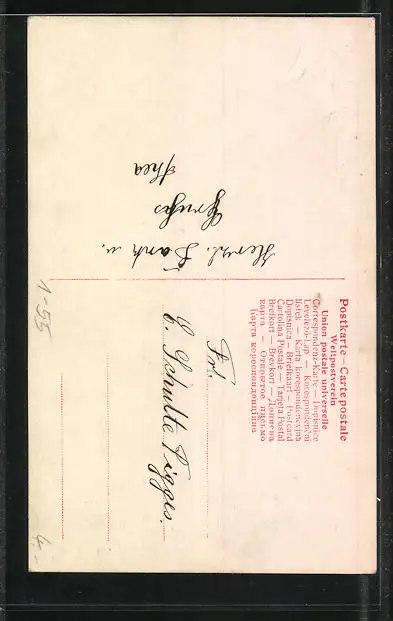 Herzl. Dank u.
Gruss
Thea
Postkarte – Carte postale
Weltpostverein
Union postale universelle
Correspondenz-Karte – Dopisnice
Levelező-Lap – Korespondenční
lístek – Karta korespondencyjna
Dopisnica – Briefkaart – Postcard
Cartolina Postale – Tarjeta Postal
Brefkort – Brevkort – Дописна
карта – Открытое письмо
Карта кореспонденційна
Frl.
E. Schulte Pigges.
1-55
4.-